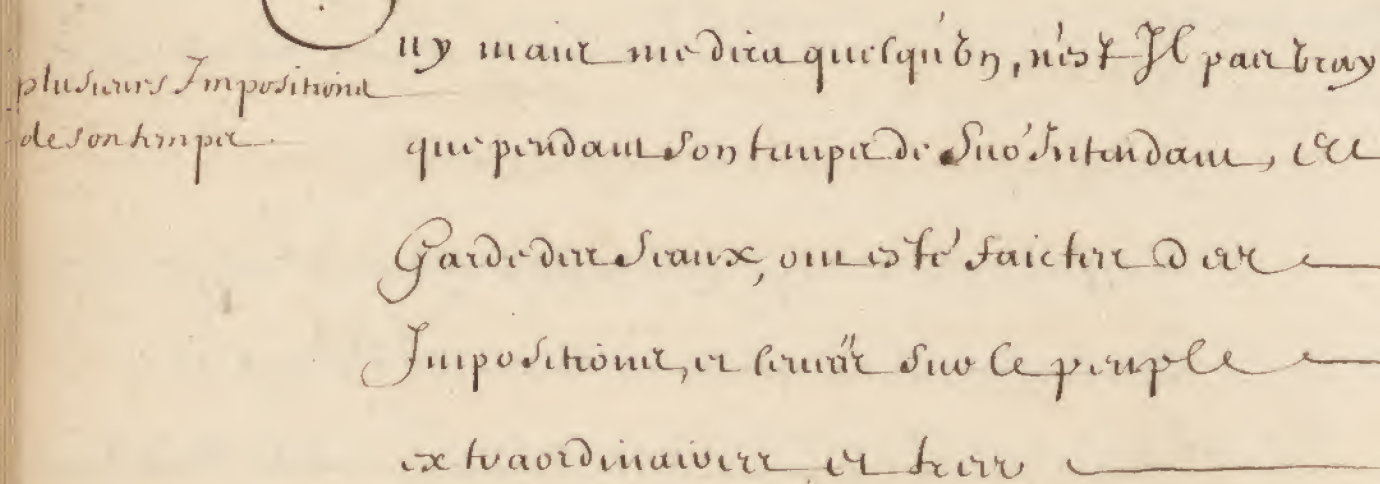 plusieurs Impositions
de son temps.
Ouy mais me dira quelqu'vn, n'est Il pas vray
que pendant son temps de Sur'Intendant, et
Garde des Seaux, ont esté faictes des
Impositions, et leuées sur le peuple
extraordinaires, et tres